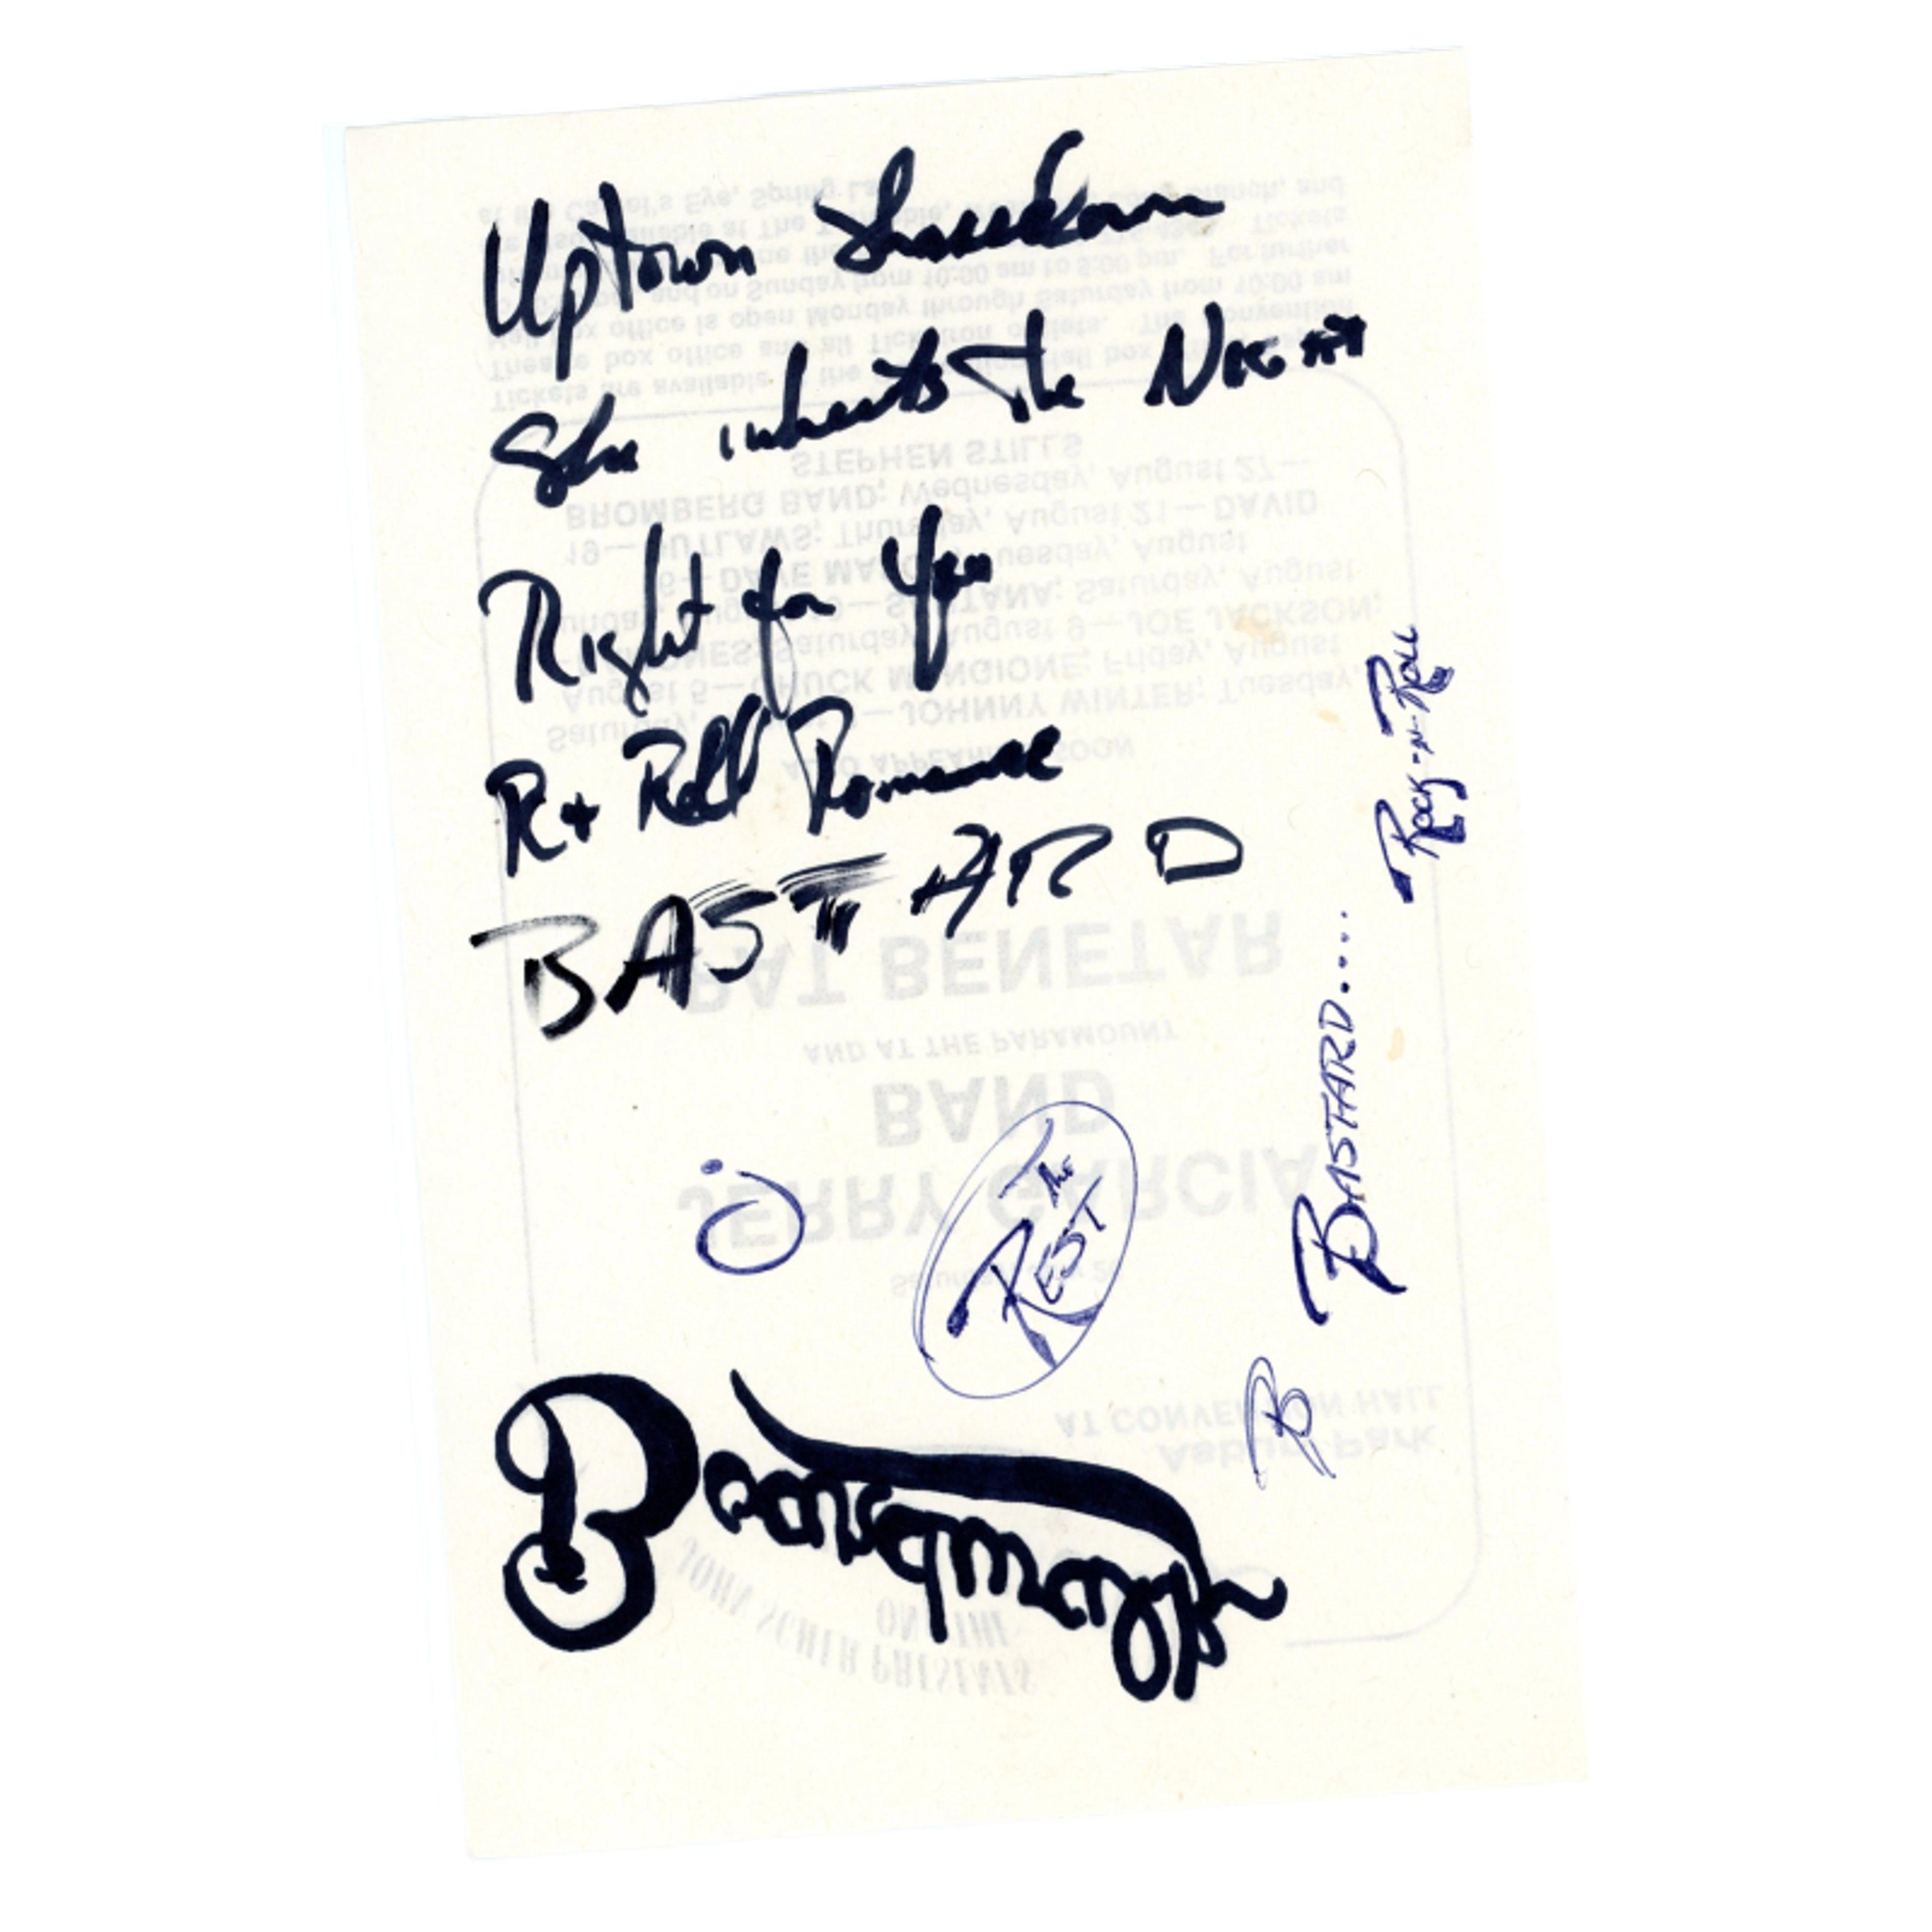 Uptown
She inherits the NIGHT
Right for You
R + Roll Romance
BASTARD
ROCK-N-ROLL
BASTARD.....
The
REST
B
JOHN SCHER PRESENTS
ON THE
Asbury Park
AT CONVENTION HALL
JERRY GARCIA
BAND
AND AT THE PARAMOUNT
PAT BENETAR
ALSO APPEARING SOON
Saturday, August — JOHNNY WINTER; Tuesday,
August 5—CHUCK MANGIONE; Friday, August
Saturday, August 9—JOE JACKSON;
Sunday, August 10—SANTANA; Saturday, August
16—DAVE MASON; Tuesday, August
19—OUTLAWS; Thursday, August 21—DAVID
BROMBERG BAND; Wednesday, August 27—
STEPHEN STILLS
Tickets are available at the Convention Hall box
Theatre box office and all Ticketron outlets. The Convention
Hall box office is open Monday through Saturday from 10:00 am
and on Sunday from 10:00 am to 5:00 pm. For further
Tickets
are also available at The
at the Camel's Eye, Spring Lake